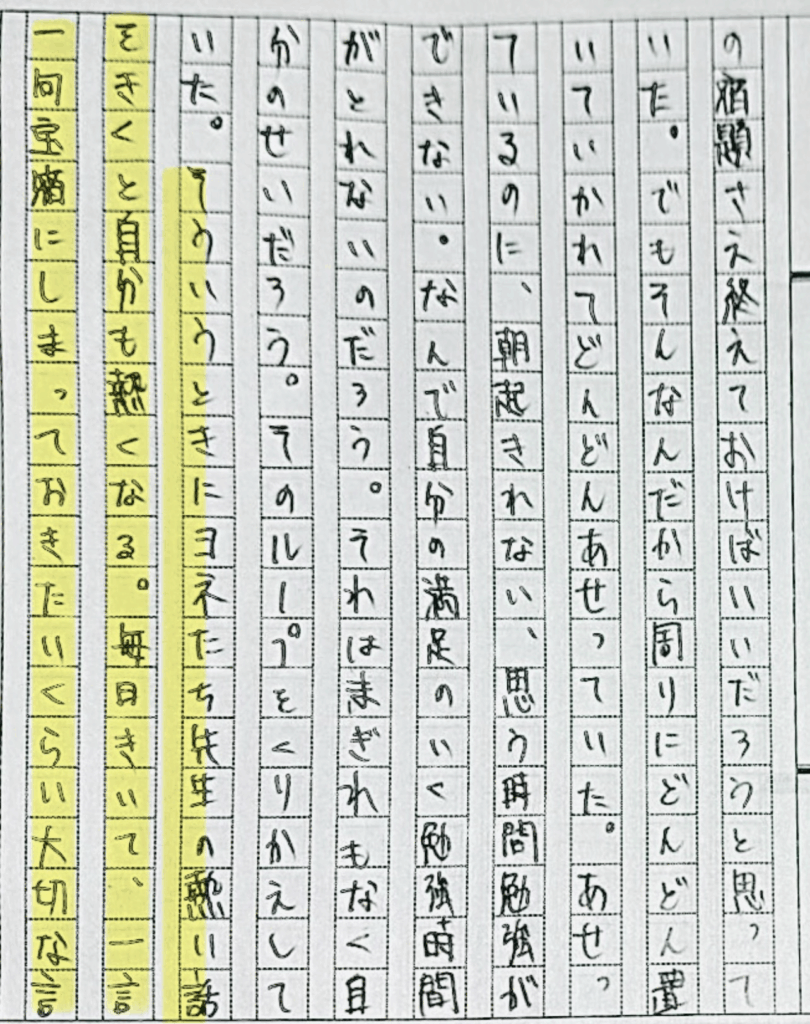 の宿題さえ終えておけばいいだろうと思って
いた。でもそんなんだから周りにどんどん置
いていかれてどんどんあせっていた。あせっ
ているのに、朝起きれない、思う時間勉強が
できない。なんで自分の満足のいく勉強時間
がとれないのだろう。それはまぎれもなく自
分のせいだろう。そのループをくりかえして
いた。そういうときにヨネたち先生の熱い話
をきくと自分も熱くなる。毎日きいて、一言
一句宝箱にしまっておきたいくらい大切な言